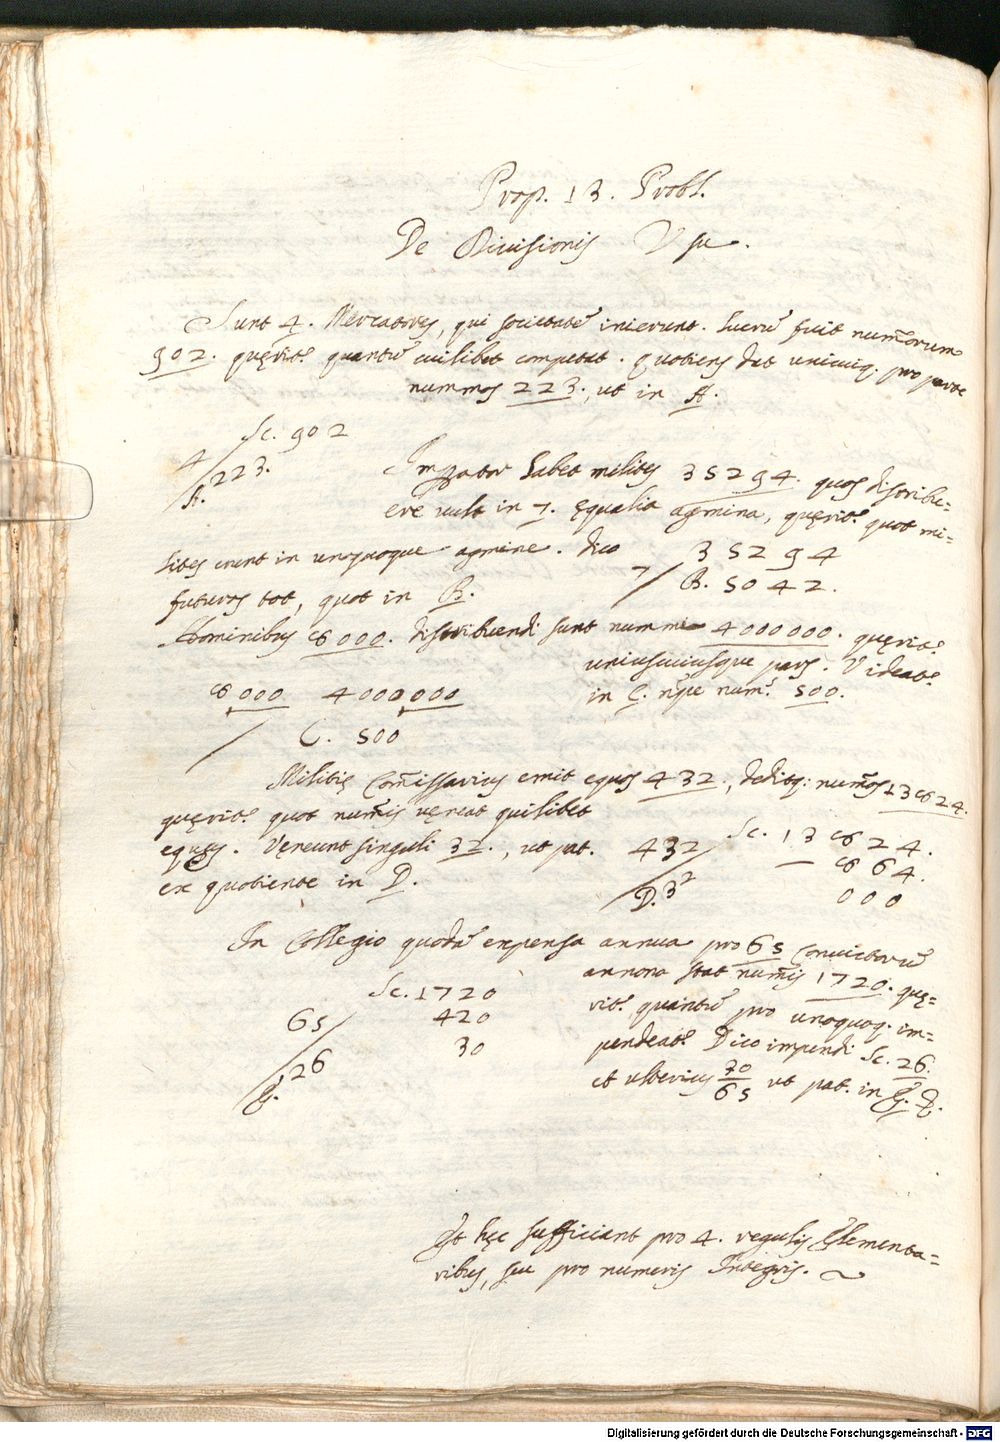 Prop. 13. Probl.
De Diuisionis Vsu.
Sunt 4. Mercatores, qui societatē inierunt. lucrū fuit num̄orum
902. quęrit̃ quantū cuilibet competat. Quotiens dat unicuiq. pro parte
nummos 223., ut in A.
Sc. 902
4
223.
A.
Imp̃ator habet milites 35294. quos distribu-
ere uult in 7. ęqualia agmina, quęrit̃ quot mi-
lites erunt in unoquoque agmine. dico
futuros tot, quot in B.
35294
7
B. 5042.
Hominibus 8000. distribuendi sunt nummi 4000000. quęrit̃
uniuscuiusque pars. Videat̃
in C. nẽpe num̃. 500.
8000 4000000
C. 500
Militię Com̃issarius emit equos 432, deditq: num̃os 13824.
quęrit̃ quot num̃is vęneat quilibet
equus. Vęneunt singuli 32., ut pat.
ex quotiente in D.
432 Sc. 13824.
864.
D. 32
000
In Collegio quodā expensa annua pro 65 conuictorū
annona stat num̃is 1720. quę-
rit̃ quantū pro unoquoq. im-
pendeat̃. Dico impendi Sc. 26.
et ulterius 30/65 ut pat. in E.
Sc. 1720
65 420
30
26
E.
Et hęc sufficiant pro 4. regulis Elementa-
ribus, seu pro numeris Integris.
Digitalisierung gefördert durch die Deutsche Forschungsgemeinschaft - DFG